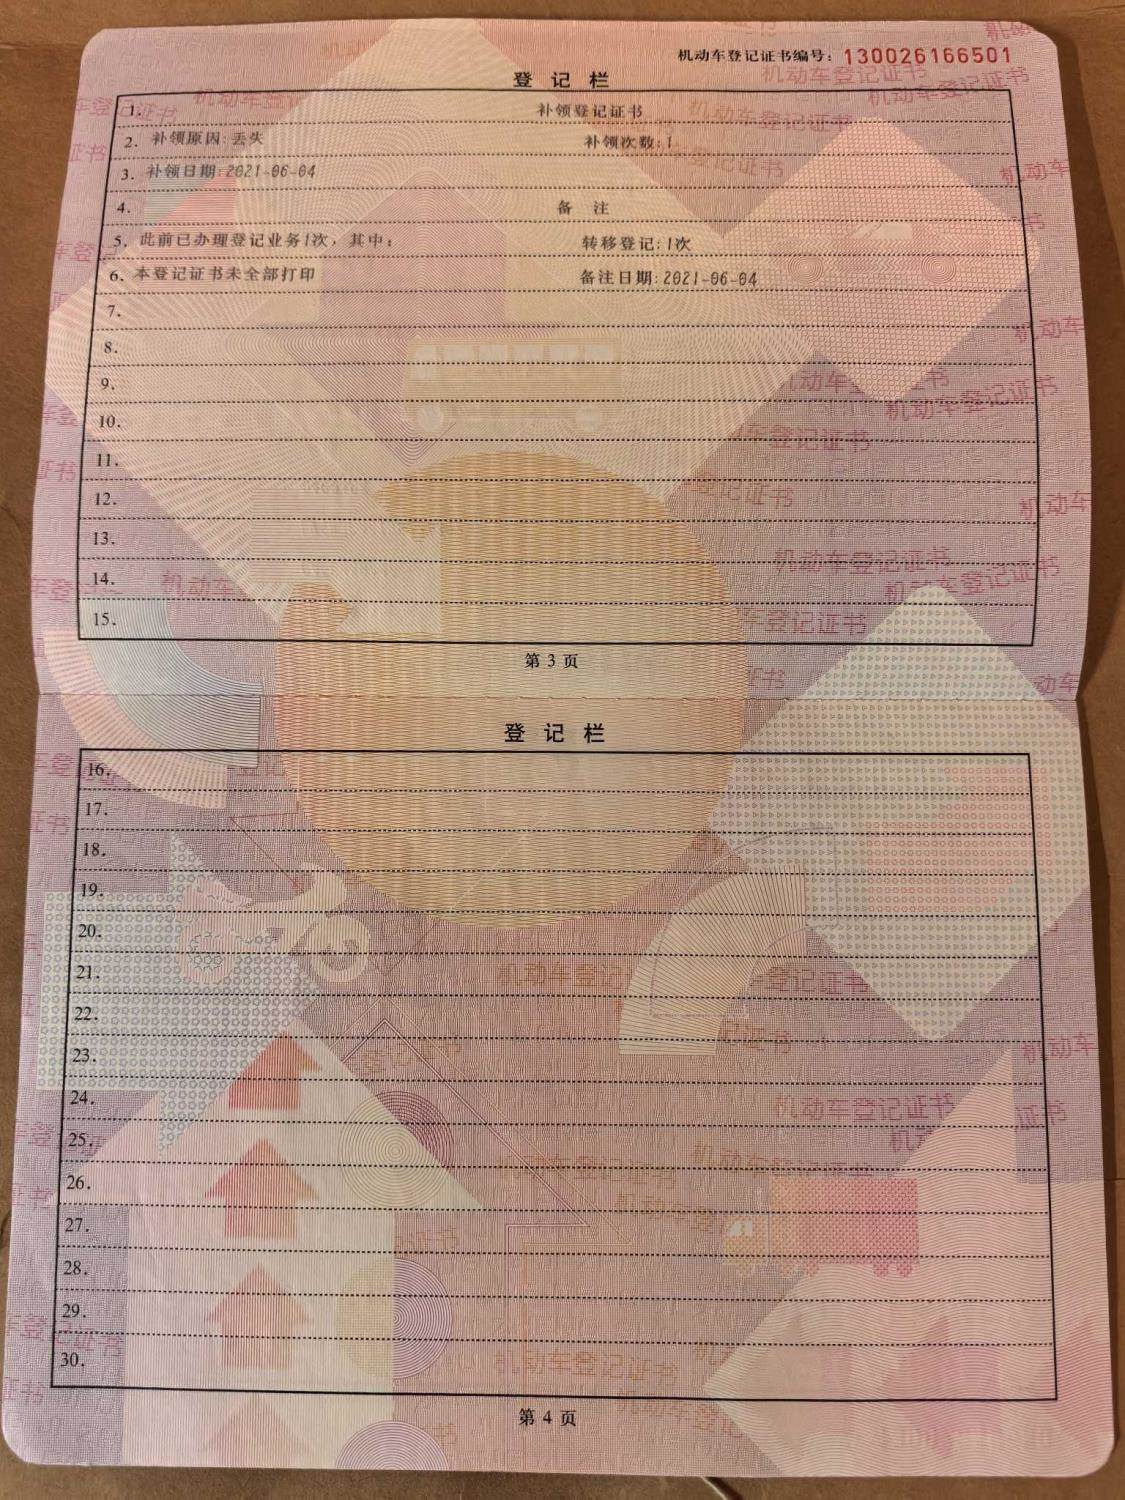 机动车登记证书编号：130026166501
登 记 栏
1. 补领登记证书
2. 补领原因:丢失 补领次数:1
3. 补领日期:2021-06-04
4. 备 注
5. 此前已办理登记业务1次，其中： 转移登记:1次
6. 本登记证书未全部打印 备注日期:2021-06-04
7.
8.
9.
10.
11.
12.
13.
14.
15.
第 3 页
登 记 栏
16.
17.
18.
19.
20.
21.
22.
23.
24.
25.
26.
27.
28.
29.
30.
第 4 页